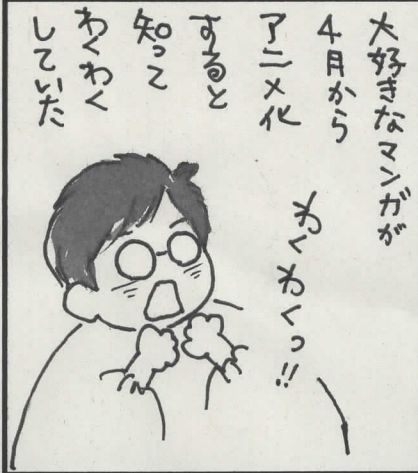 大好きなマンガが
4月から
アニメ化
すると
知って
わくわく
していた
わくわくっ!!